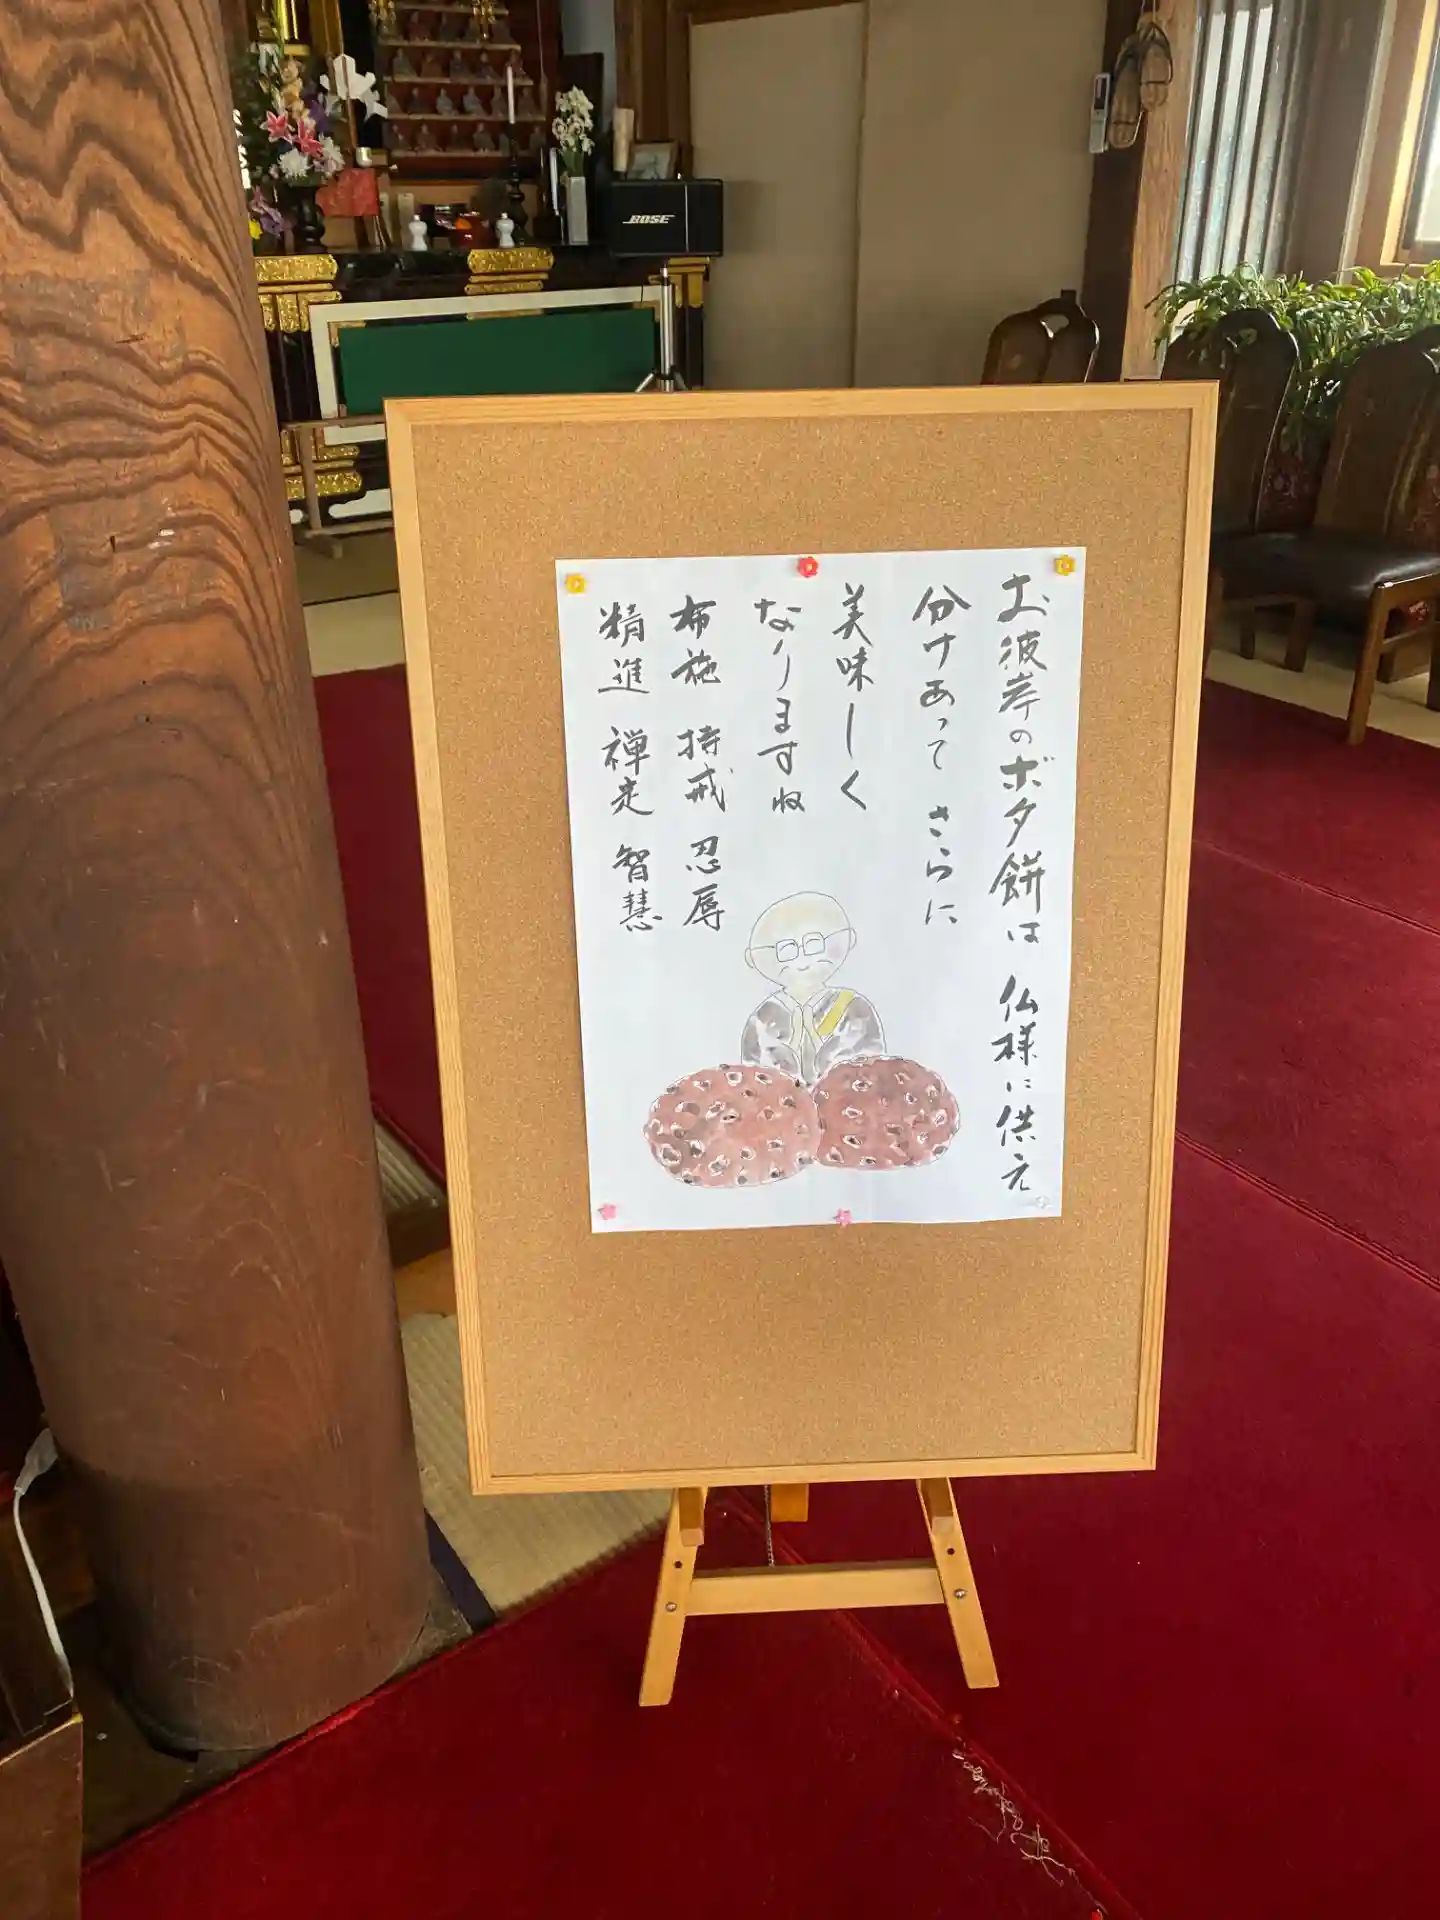 お彼岸のボタ餅は 仏様に供え
分けあって さらに
美味しく
なりますね
布施 持戒 忍辱
精進 禅定 智慧
BOSE